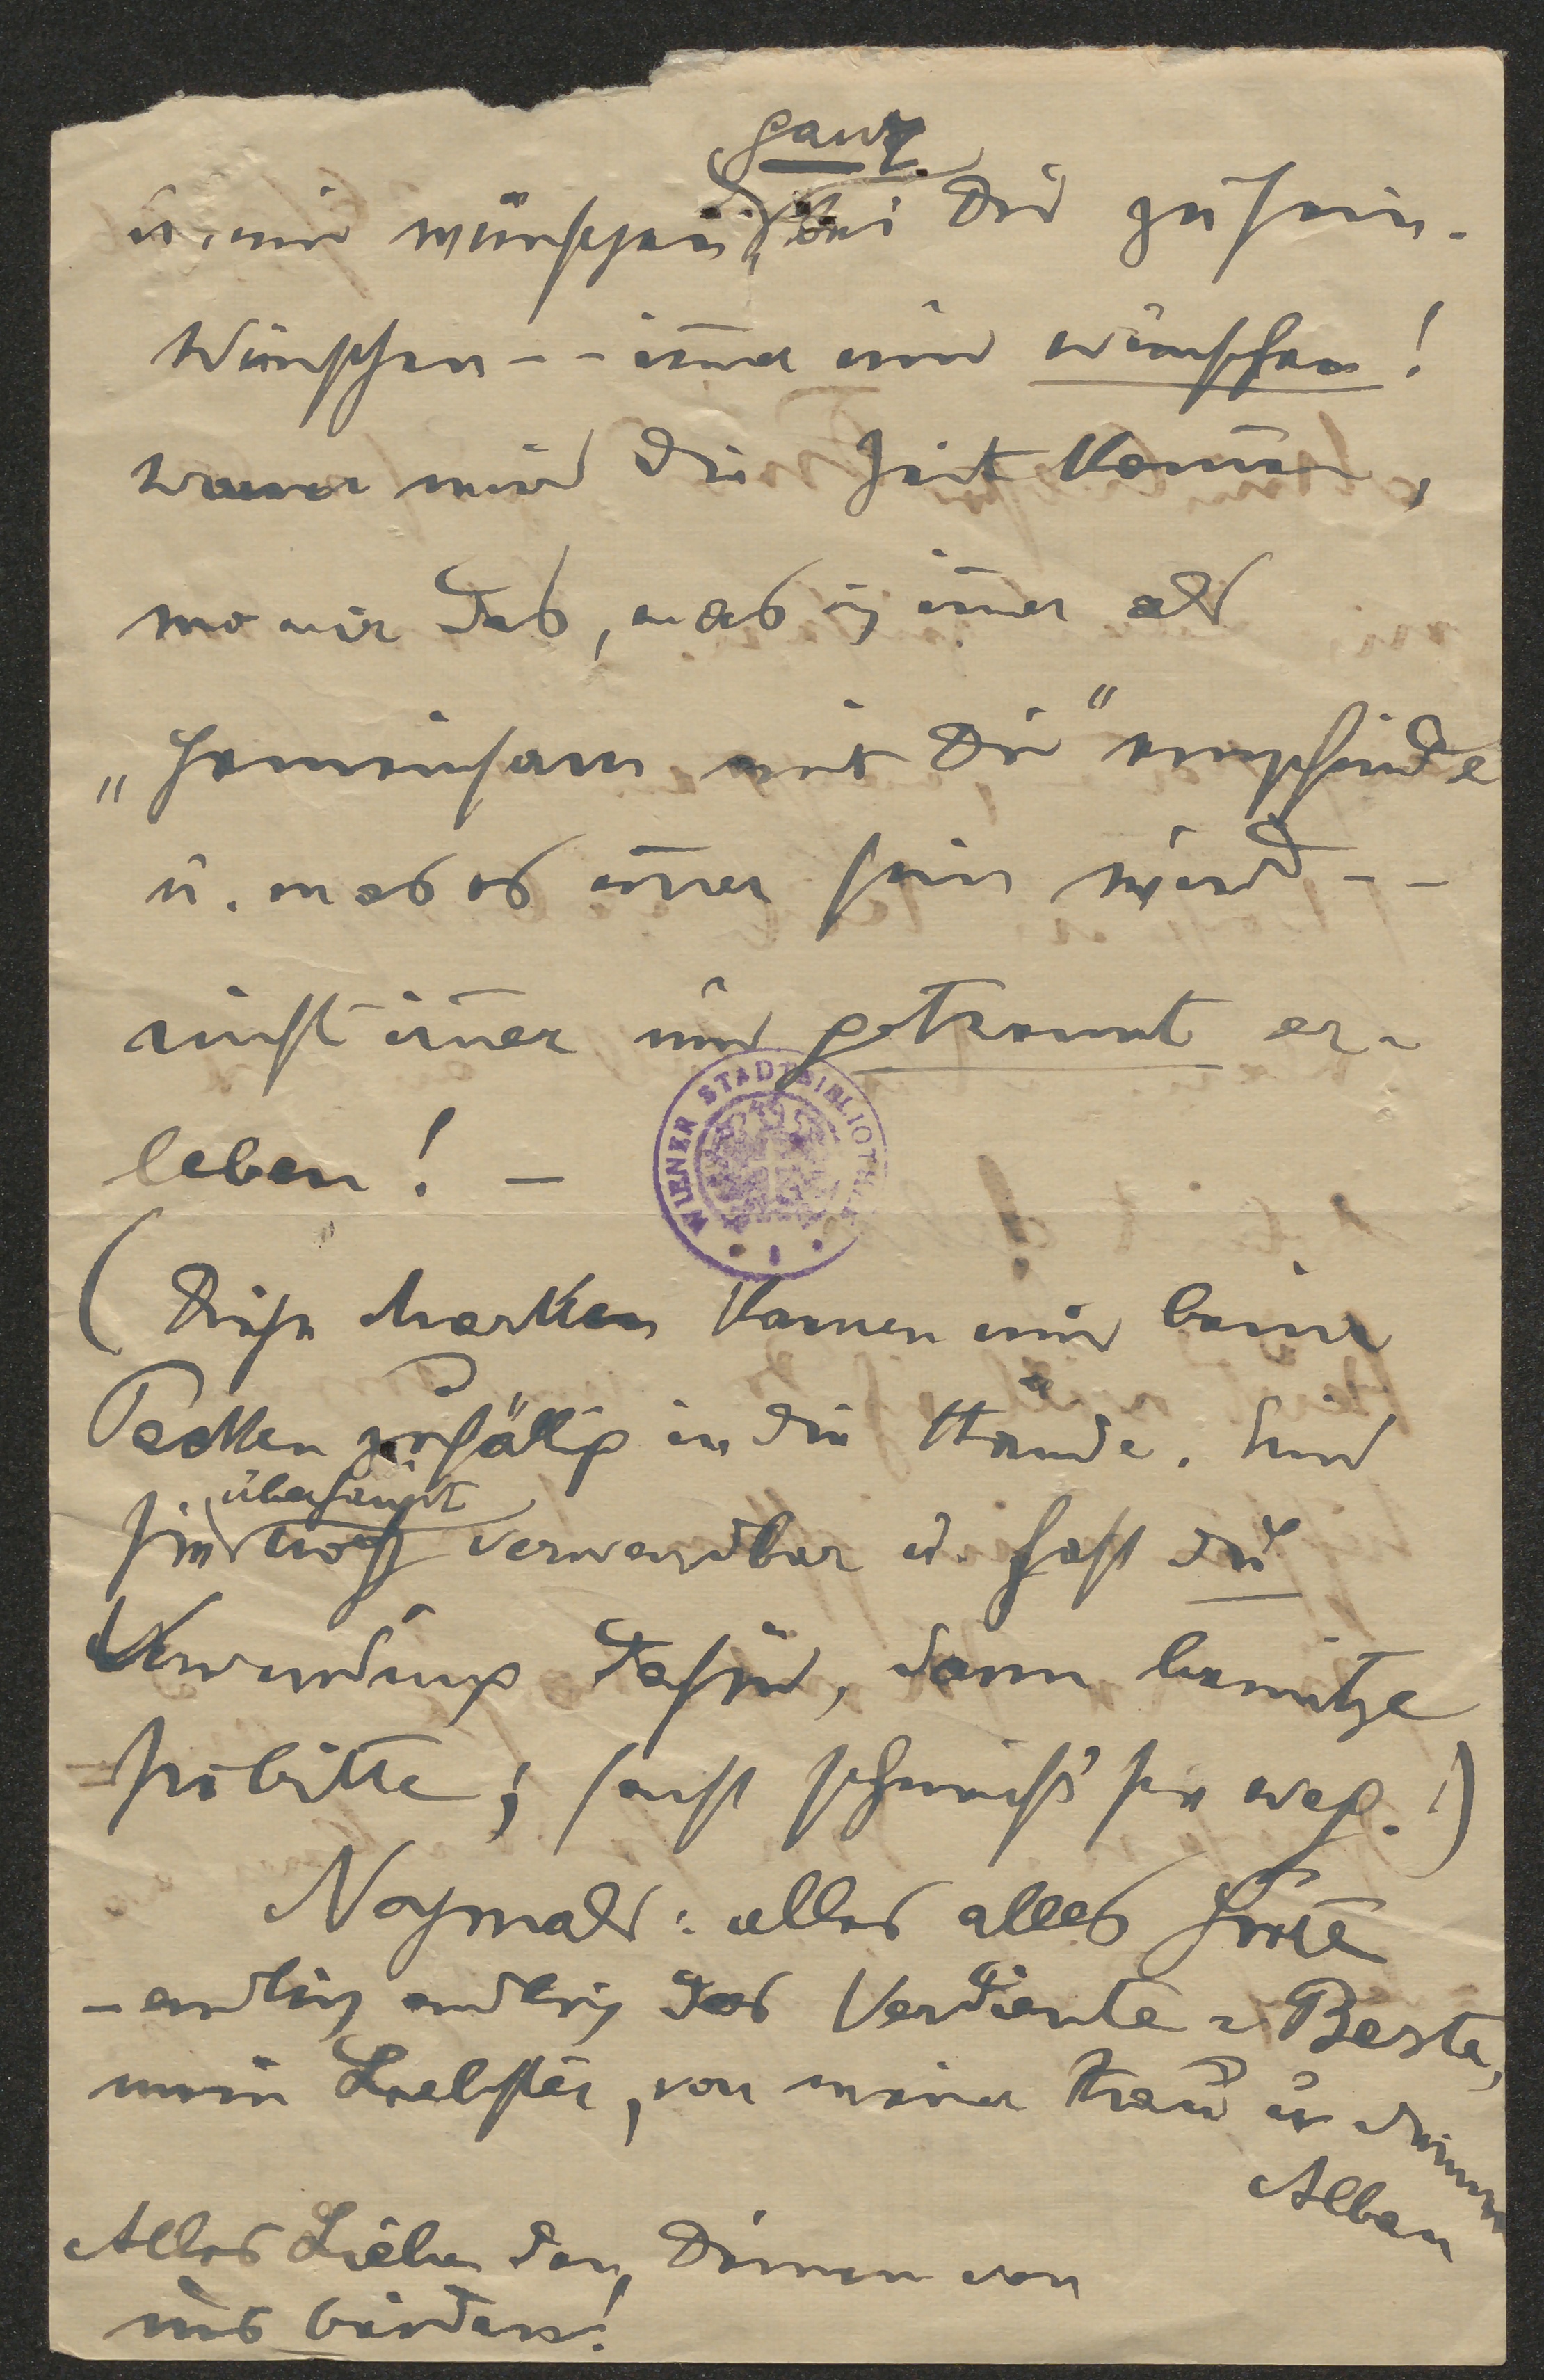 ganz
u. nur wünschen, bei Dir zu sein.
Wünschen -- im̅er nur wünschen!
Wann wird die Zeit kom̅en,
wo wir das, was ich im̅er als
„Gemeinsam mit Dir" empfinde
u. was es im̅er sein wird --
nicht im̅er nur getrennt er-
leben! -
WIENER STADTBIBLIOTHEK
(Diese Marken kamen mir beim
Packen zufällig in die Hände. Sind
überhaupt
sie noch verwendbar u. hast Du
Verwendung dafür, dann benütze
sie bitte; sonst schmeiß' sie weg.!)
Nochmals: alles alles Gute
- endlich endlich das Verdiente u Beste,
mein Liebster, von meiner Frau u deinem
Alban
Alles Liebe den Deinen von
uns beiden!